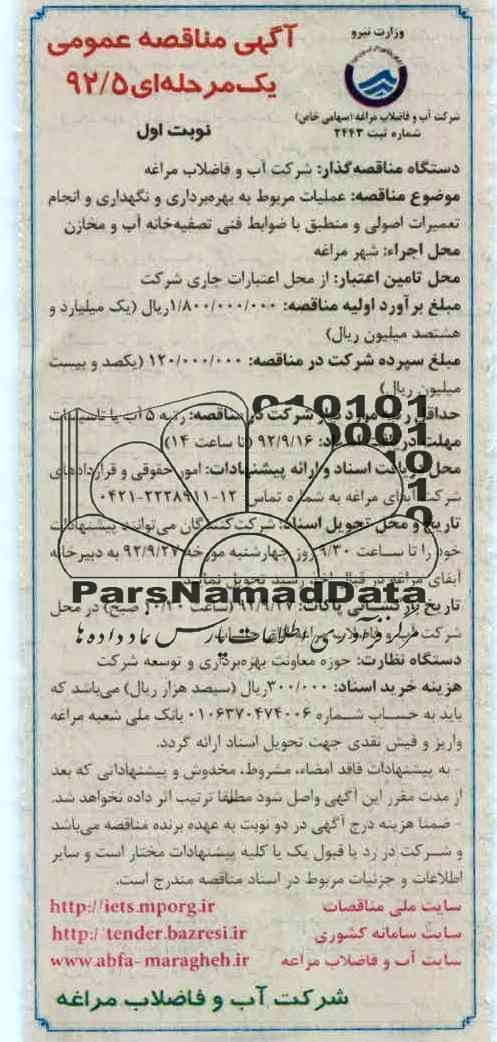 وزارت نیرو
شرکت آب و فاضلاب مراغه (سهامی خاص)
شماره ثبت ۲۴۴۳
آگهی مناقصه عمومی
یک‌مرحله‌ای ۹۲/۵
نوبت اول
دستگاه مناقصه‌گذار: شرکت آب و فاضلاب مراغه
موضوع مناقصه: عملیات مربوط به بهره‌برداری و نگهداری و انجام
تعمیرات اصولی و منطبق با ضوابط فنی تصفیه‌خانه آب و مخازن
محل اجراء: شهر مراغه
محل تامین اعتبار: از محل اعتبارات جاری شرکت
مبلغ برآورد اولیه مناقصه: ۱/۸۰۰/۰۰۰/۰۰۰ریال (یک میلیارد و
هشتصد میلیون ریال)
مبلغ سپرده شرکت در مناقصه: ۱۲۰/۰۰۰/۰۰۰ (یکصد و بیست
میلیون ریال)
حداقل شرکت در مناقصه: رتبه ۵ آب یا تاسیسات
مهلت دریافت اسناد: ۹۲/۹/۱۶ (تا ساعت ۱۴)
محل دریافت اسناد و ارائه پیشنهادات: امور حقوقی و قراردادهای
شرکت آبفای مراغه به شماره تماس ۱۲-۲۲۲۸۹۱۱-۰۴۲۱
تاریخ و محل تحویل اسناد: شرکت‌کنندگان می‌توانند پیشنهادات
خود را تا ساعت ۹/۳۰ روز چهارشنبه مورخه ۹۲/۹/۲۷ به دبیرخانه
آبفای مراغه در قبال اخذ رسید تحویل نمایند.
تاریخ بازگشائی پاکات: ۹۲/۹/۲۷ (ساعت ۱۰/۳۰ صبح) در محل
شرکت آب و فاضلاب مراغه
دستگاه نظارت: حوزه معاونت بهره‌برداری و توسعه شرکت
هزینه خرید اسناد: ۳۰۰/۰۰۰ریال (سیصد هزار ریال) می‌باشد که
باید به حساب شماره ۰۱۰۶۳۷۰۴۷۴۰۰۶ بانک ملی شعبه مراغه
واریز و فیش نقدی جهت تحویل اسناد ارائه گردد.
- به پیشنهادات فاقد امضاء، مشروط، مخدوش و پیشنهاداتی که بعد
از مدت مقرر این آگهی واصل شود مطلقا ترتیب اثر داده نخواهد شد.
- ضمنا هزینه درج آگهی در دو نوبت به عهده برنده مناقصه می‌باشد
و شرکت در رد یا قبول یک یا کلیه پیشنهادات مختار است و سایر
اطلاعات و جزئیات مربوط در اسناد مناقصه مندرج است.
سایت ملی مناقصات http://iets.mporg.ir
سایت سامانه کشوری http://tender.bazresi.ir
سایت آب و فاضلاب مراغه www.abfa-maragheh.ir
شرکت آب و فاضلاب مراغه
ParsNamadData
مرکز فرآوری اطلاعات پارس نماد داده ها